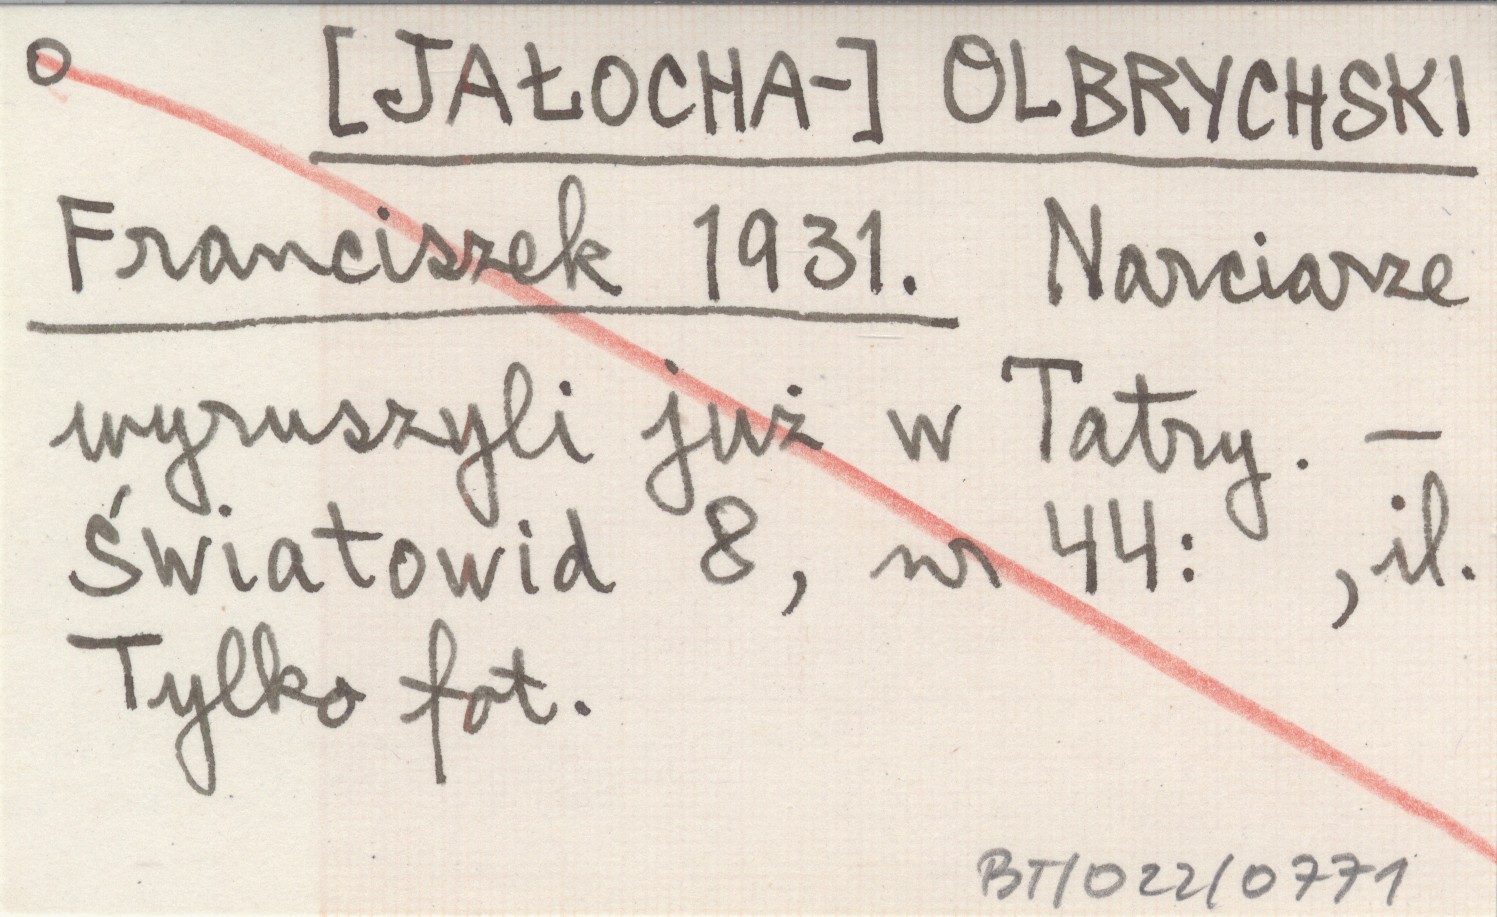 [JAŁOCHA-] OLBRYCHSKI
Franciszek 1931. Narciarze
wyruszyli już w Tatry. —
Światowid 8, nr 44: , il.
Tylko fot.
BT/022/0771